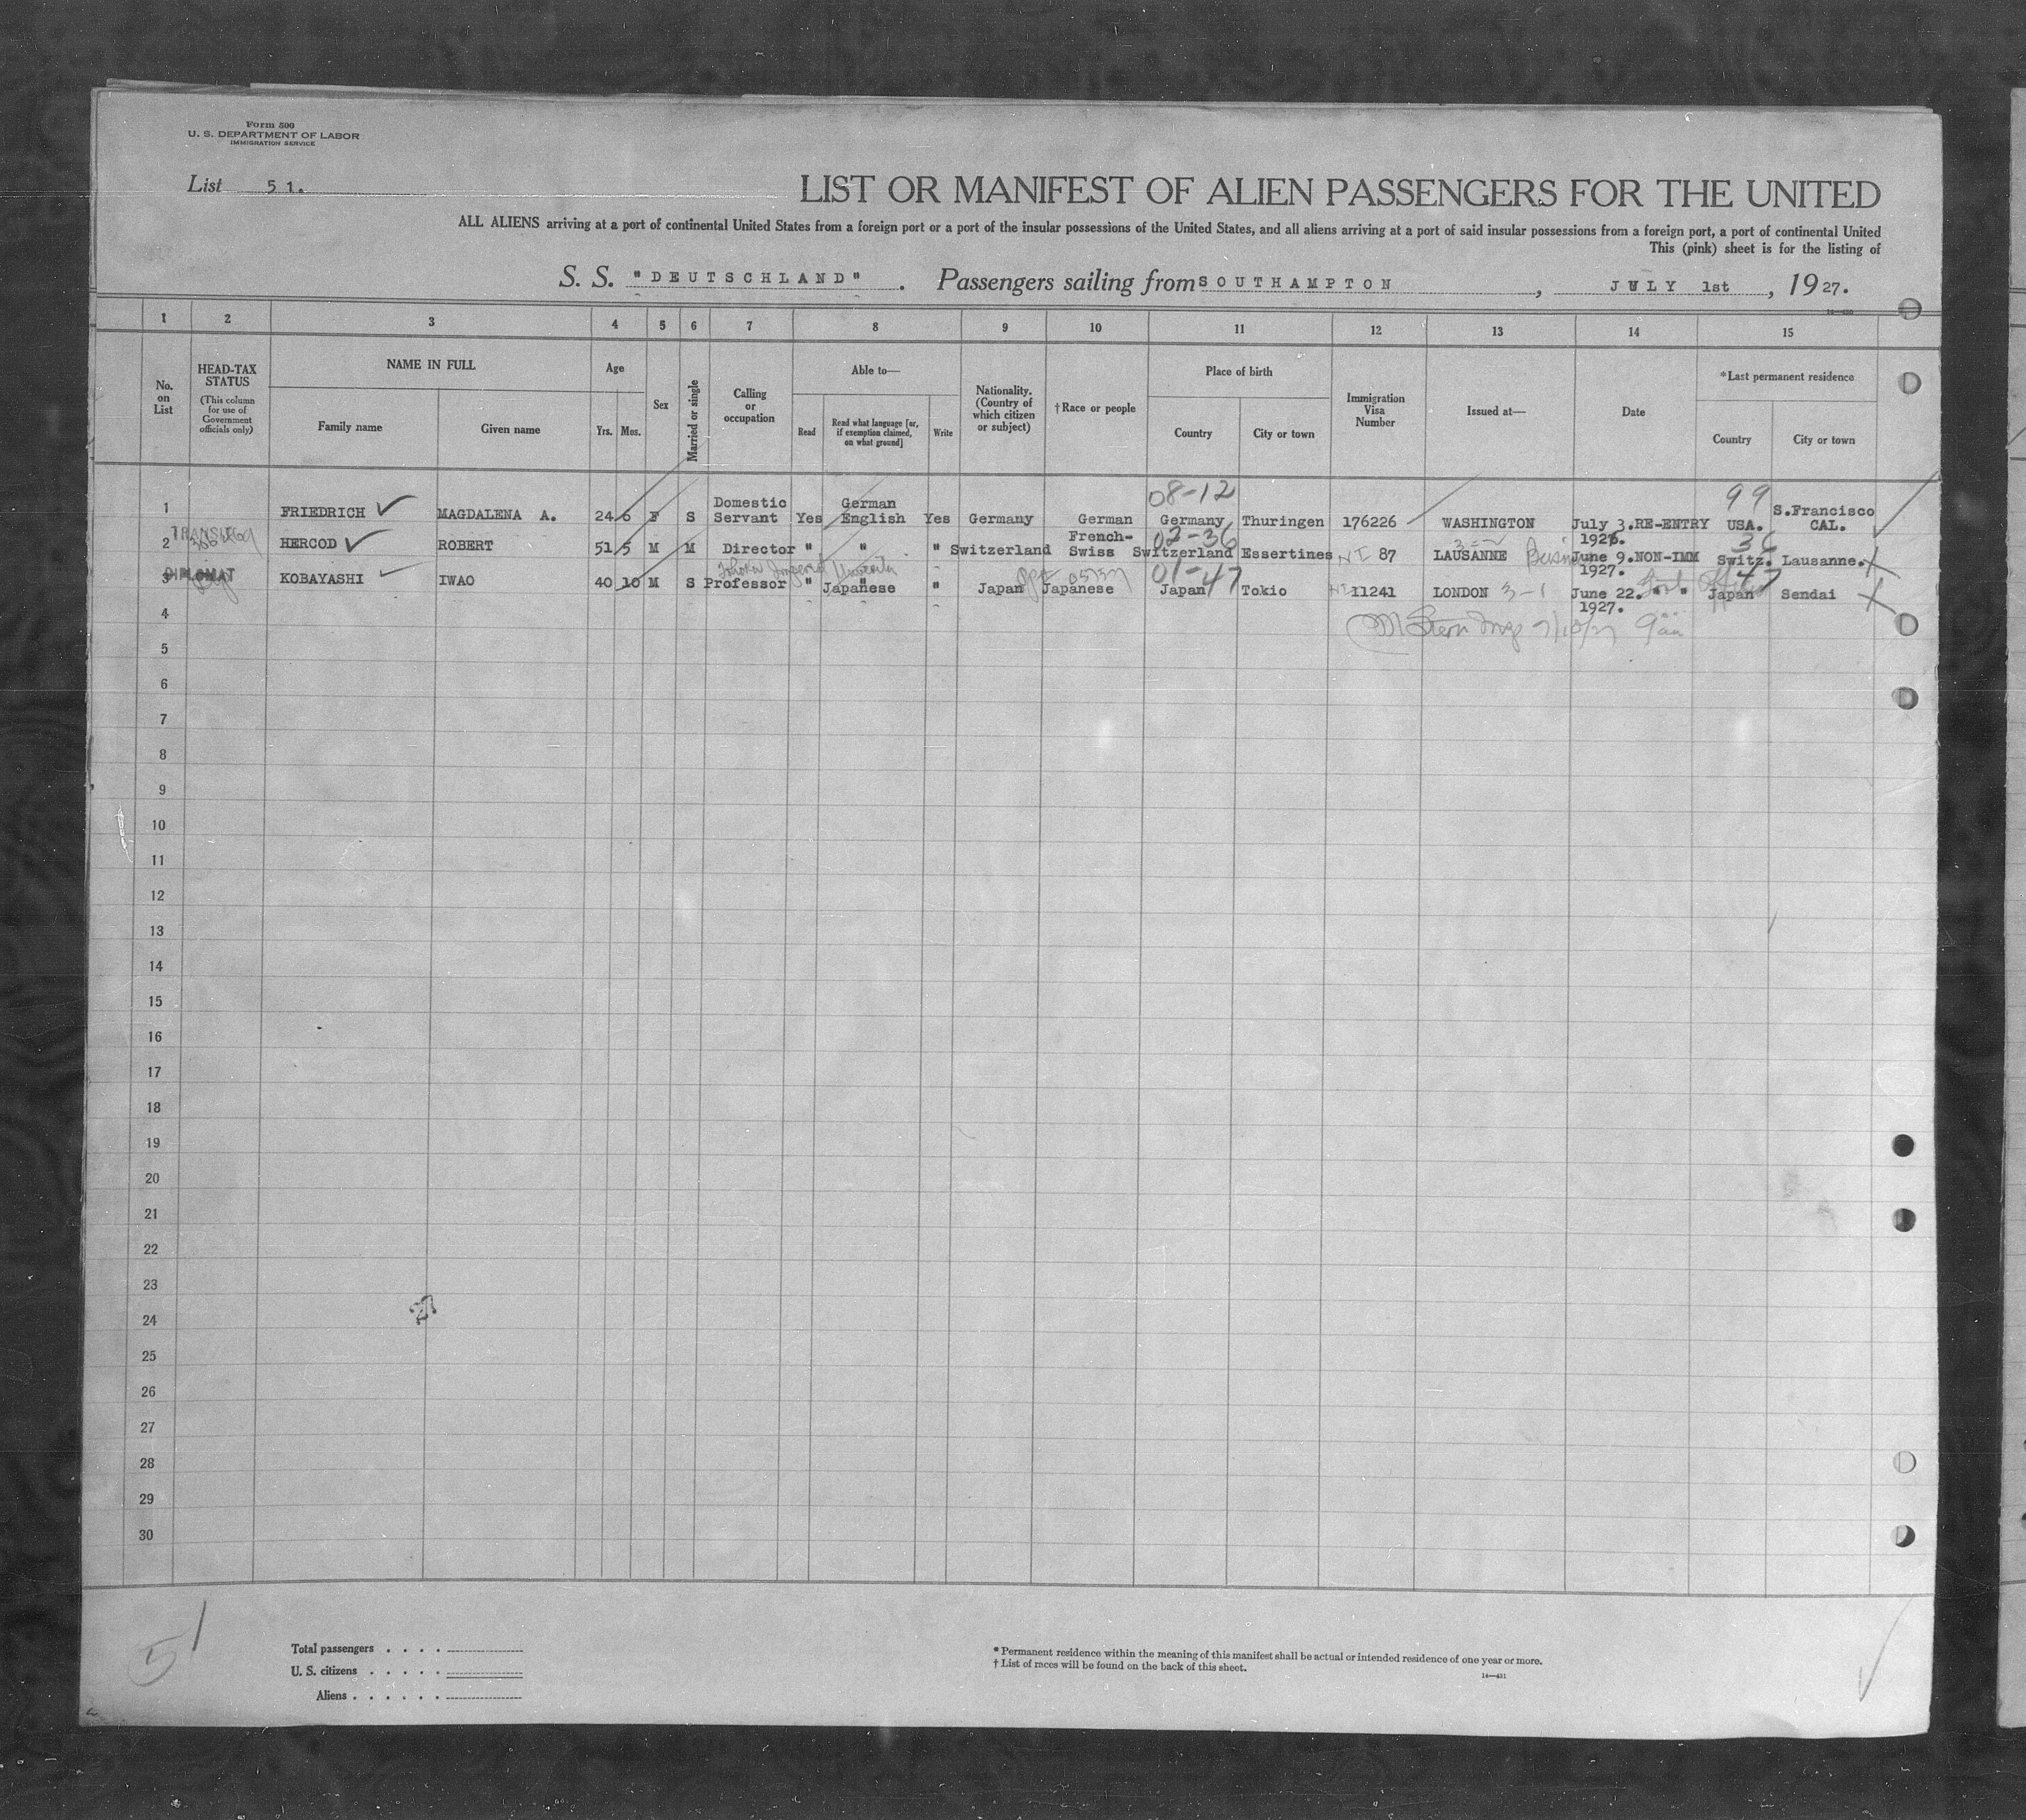 Form 500
U. S. DEPARTMENT OF LABOR
IMMIGRATION SERVICE
List 51.
LIST OR MANIFEST OF ALIEN PASSENGERS FOR THE UNITED
ALL ALIENS arriving at a port of continental United States from a foreign port or a port of the insular possessions of the United States, and all aliens arriving at a port of said insular possessions from a foreign port, a port of continental United
This (pink) sheet is for the listing of
S. S. "DEUTSCHLAND". Passengers sailing from SOUTHAMPTON, JULY 1st, 1927.
1 2 3 4 5 6 7 8 9 10 11 12 13 14 15
No. on List
HEAD-TAX STATUS
(This column for use of Government officials only)
NAME IN FULL
Family name
Given name
Age
Yrs. Mos.
Sex
Married or single
Calling or occupation
Able to—
Read
Read what language [or, if exemption claimed, on what ground]
Write
Nationality. (Country of which citizen or subject)
†Race or people
Place of birth
Country
City or town
Immigration Visa Number
Issued at—
Date
*Last permanent residence
Country
City or town
08-12 99
1 FRIEDRICH MAGDALENA A. 24 6 F S Domestic Servant Yes German English Yes Germany German Germany Thuringen 176226 WASHINGTON July 3. 1926. RE-ENTRY USA. S.Francisco CAL.
02-36 36
2 HERCOD ROBERT 51 5 M M Director " " " Switzerland French-Swiss Switzerland Essertines NI 87 LAUSANNE June 9. 1927. NON-IMM Switz. Lausanne.
DIPLOMAT
01-47 47
3 KOBAYASHI IWAO 40 10 M S Professor " Japanese " Japan Japanese Japan Tokio NI 11241 LONDON 3-1 June 22. 1927. " " Japan Sendai
4
5
6
7
8
9
10
11
12
13
14
15
16
17
18
19
20
21
22
23
24
25
26
27
28
29
30
51
Total passengers
U. S. citizens
Aliens
* Permanent residence within the meaning of this manifest shall be actual or intended residence of one year or more.
† List of races will be found on the back of this sheet.
14—431